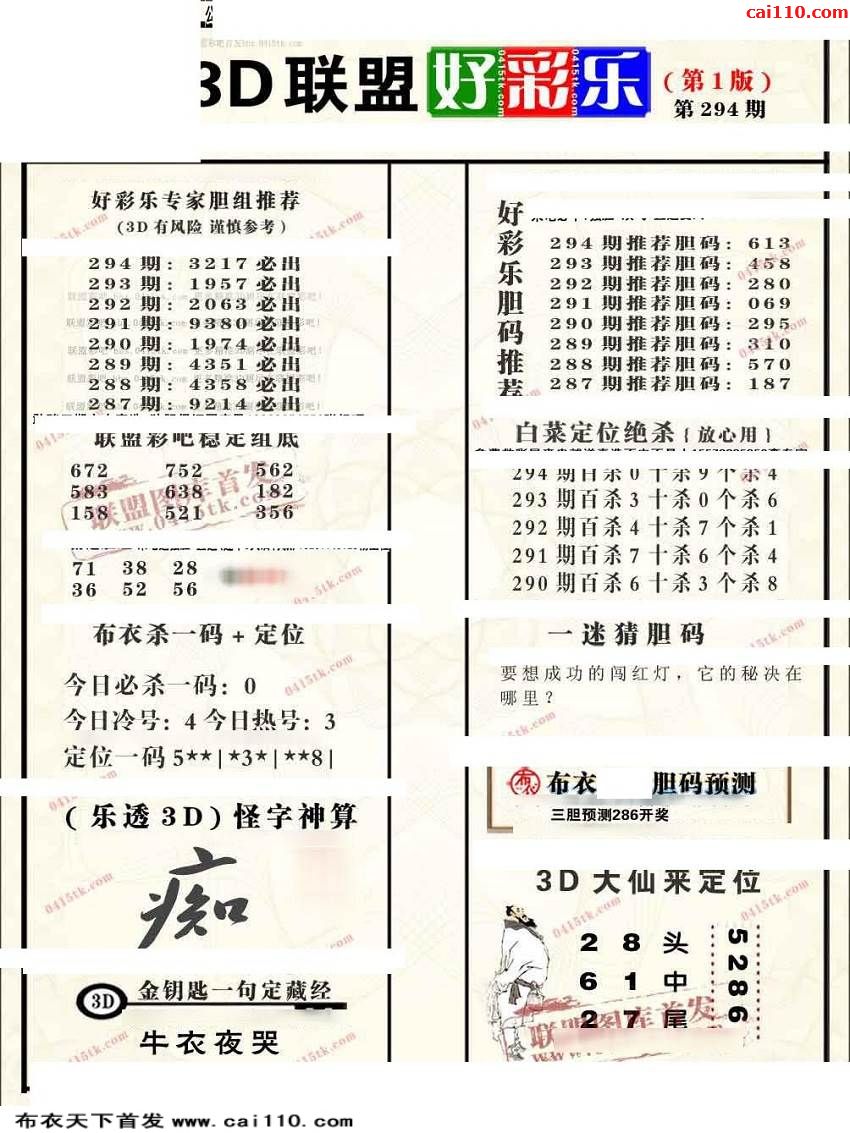 cai110.com
3D联盟 好彩乐 (第1版)
第294期
好彩乐专家胆组推荐
(3D有风险 谨慎参考)
294期: 3217必出
293期: 1957必出
292期: 2063必出
291期: 9380必出
290期: 1974必出
289期: 4351必出
288期: 4358必出
287期: 9214必出
联盟彩吧稳定组底
672 752 562
583 638 182
158 521 356
71 38 28
36 52 56
布衣杀一码+定位
今日必杀一码: 0
今日冷号: 4 今日热号: 3
定位一码 5**|*3*|**8|
(乐透3D) 怪字神算
痴
3D 金钥匙一句定藏经
牛衣夜哭
好彩乐胆码推荐
294期推荐胆码: 613
293期推荐胆码: 458
292期推荐胆码: 280
291期推荐胆码: 069
290期推荐胆码: 295
289期推荐胆码: 310
288期推荐胆码: 570
287期推荐胆码: 187
白菜定位绝杀{放心用}
294期百杀0十杀9个杀4
293期百杀3十杀0个杀6
292期百杀4十杀7个杀1
291期百杀7十杀6个杀4
290期百杀6十杀3个杀8
一迷猜胆码
要想成功的闯红灯，它的秘决在
哪里？
布衣 胆码预测
三胆预测286开奖
3D大仙来定位
2 8 头
6 1 中
2 7 尾
5286
联盟图库首发
www.0415tk.com
0415tk.com
布衣天下首发 www.cai110.com